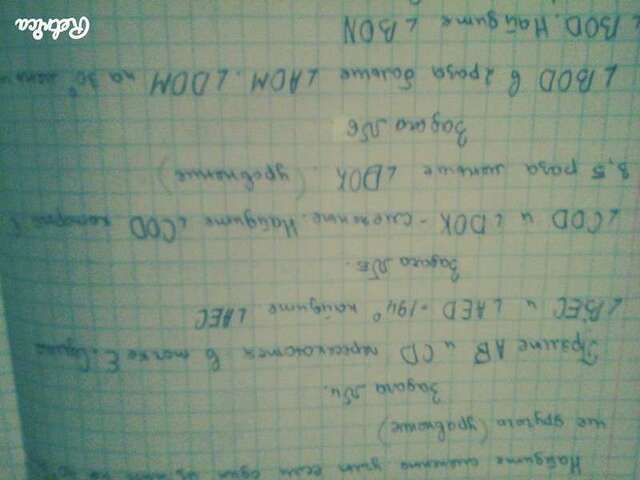 Найдите смежные углы если один из них на
ше другого (уравнение)
Задача №4.
Прямые AB и CD пересекаются в точке E. Сумма
∠BEC и ∠AED - 194° найдите ∠AEC
Задача №5.
∠COD и ∠DOK - смежные. Найдите ∠COD который в
3,5 раза меньше ∠DOK. (уравнение)
Задача №6
∠BOD в 2 раза больше ∠AOM. ∠DOM на 30°
∠BOD. Найдите ∠BON
Retrica